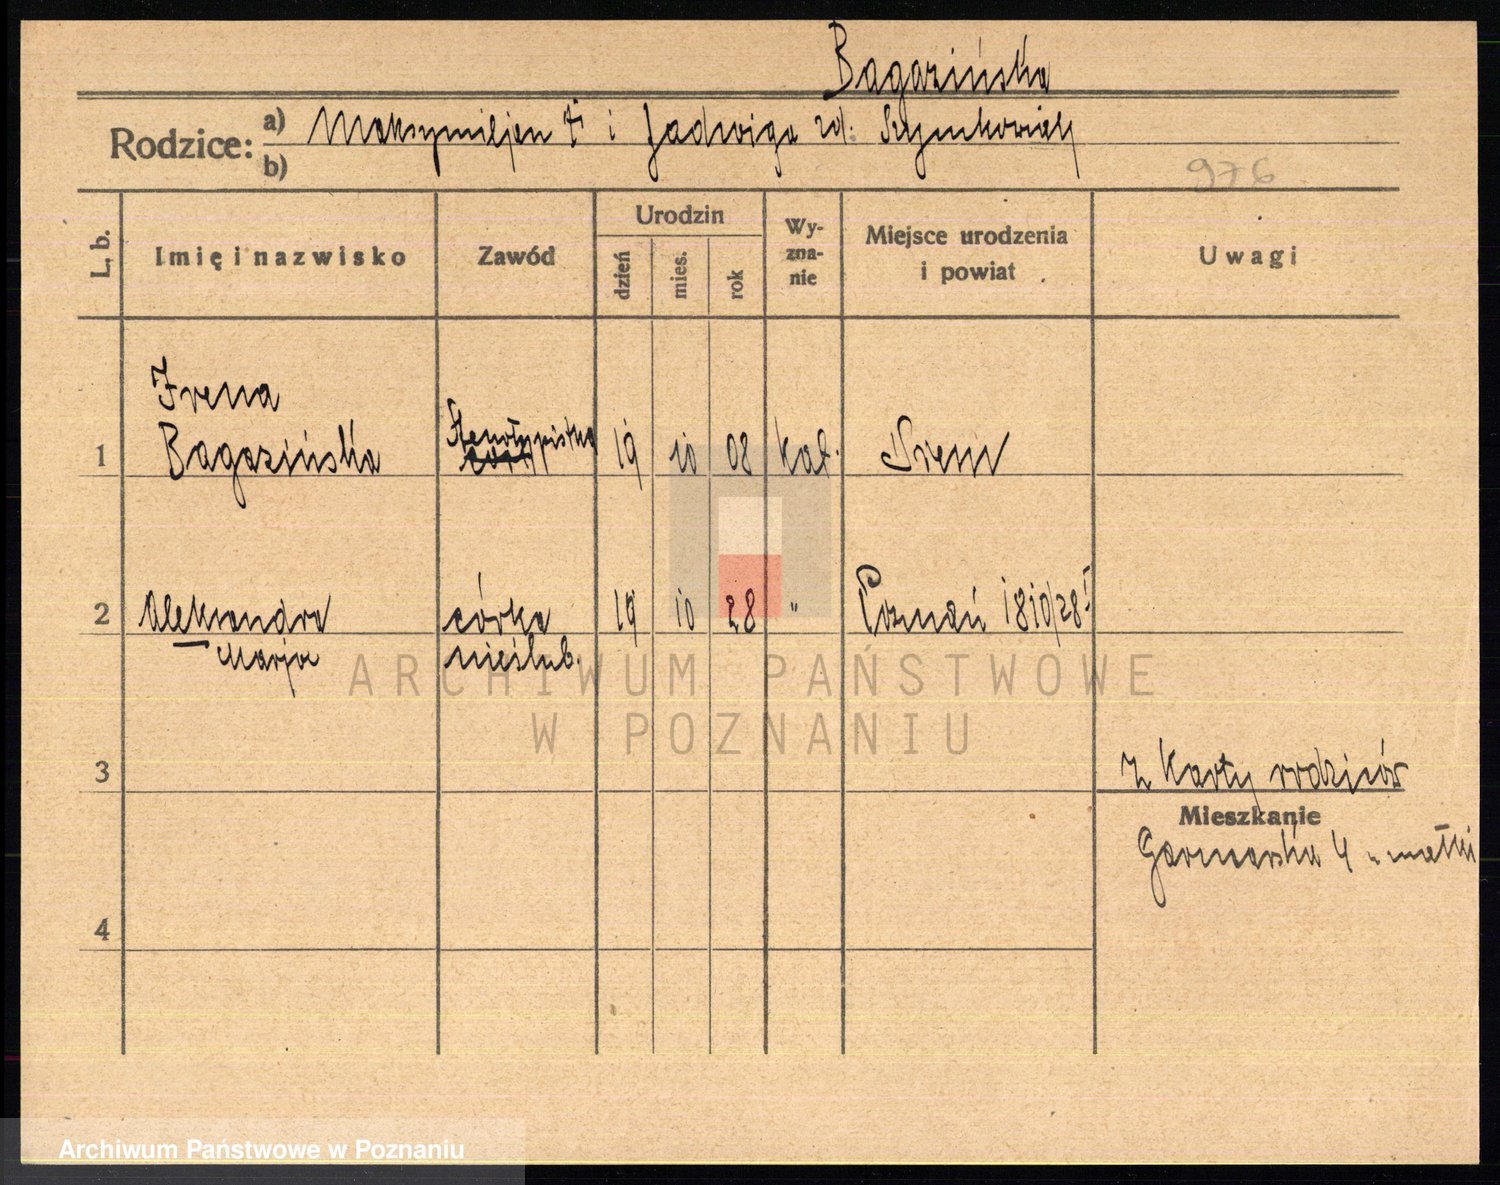 Bagazińska
Rodzice: a) Maksymiljan † i Jadwiga zd: Szymkowiak
b)
976
L. b. Imię i nazwisko Zawód Urodzin dzień mies. rok Wy-zna-nie Miejsce urodzenia i powiat Uwagi
Irena
1 Bagazińska Stenotypistka 19 10 08 kat. Śrem
2 Aleksandra córka 19 10 28 " Poznań 1810/28 I
Marja nieślub.
ARCHIWUM PAŃSTWOWE
W POZNANIU
3 z Karty rodziców
Mieszkanie
Garncarska 4 u matki
4
Archiwum Państwowe w Poznaniu